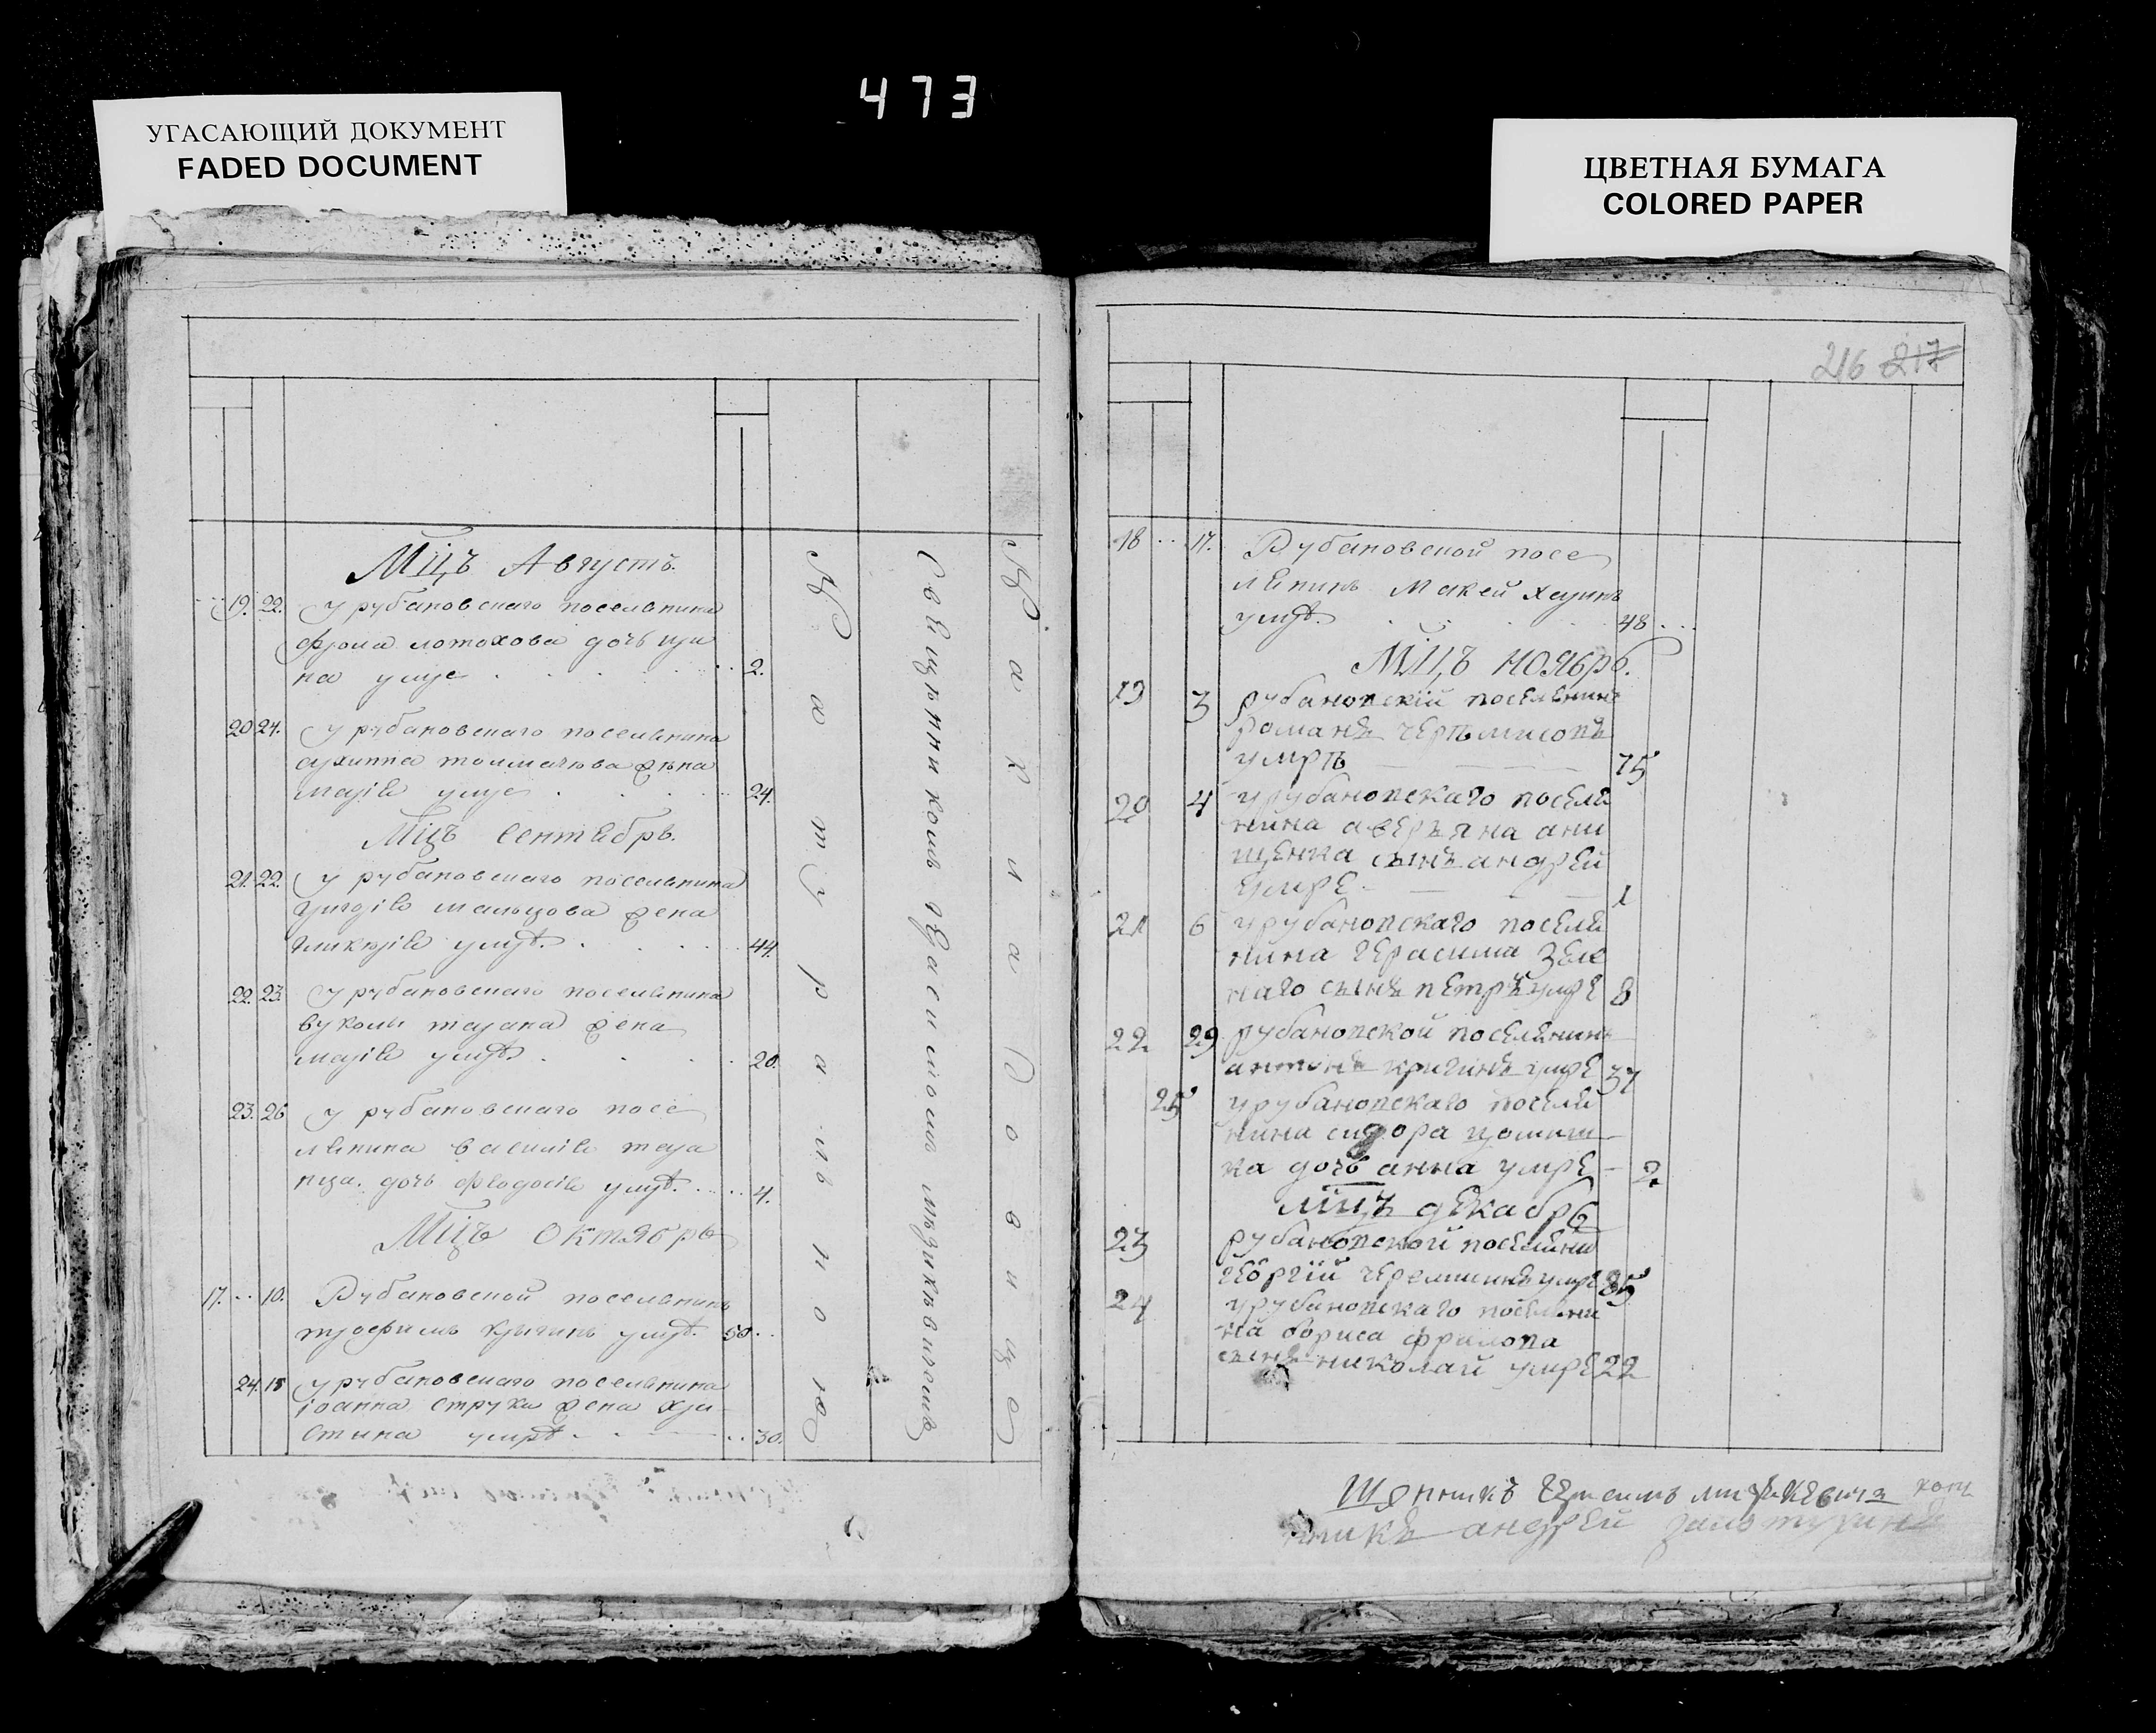 473
УГАСАЮЩИЙ ДОКУМЕНТ
FADED DOCUMENT
ЦВЕТНАЯ БУМАГА
COLORED PAPER
Мцъ Августъ.
19. 22. у рубановскаго поселянина
фрола лотохова дочь ири
на умре 2.
20 24. у рубановскаго поселянина
архиппа толмачева жена
марія умре 24.
Мцъ сентябрь.
21. 22. у рубановскаго поселянина
мальцова жена
гликерія умрѣ. 44.
22. 23. у рубановскаго поселянина
вуколы тарана жена
марія умрѣ 20.
23. 26 у рубановскаго посе
лянина василія тара
нца. дочь феодосія умрѣ. 4.
Мцъ октябрь
17. 10. Рубановской поселянинъ
трофимъ кригинъ умрѣ. 50.
24. 18 у рубановскаго поселянина
іоанна струка жена хри
стина умрѣ. 30.
натурально
Священникомъ Герасимомъ
216 217
18 17. Рубановской посе
лянинъ Макей
умрѣ. 48
Мцъ ноябрь.
19 3 рубановскій поселянинъ
романъ
умрѣ 75
20 4 у рубановскаго поселя
нина аверъяна они
щенка сынъ андрей
умре 1
21 6 у рубановскаго поселя
нина герасима зеле
наго сынъ петръ умре 8
22 29 рубановской поселянинъ
антонъ кригинъ умре 37
25 у рубановскаго поселя
нина сидора
ка дочь анна умре 2
мцъ декабрь
23 рубановской поселяни
георгій умре 85
24 у рубановскаго поселяни
на бориса фролова
сынъ николай умре 22
андрей